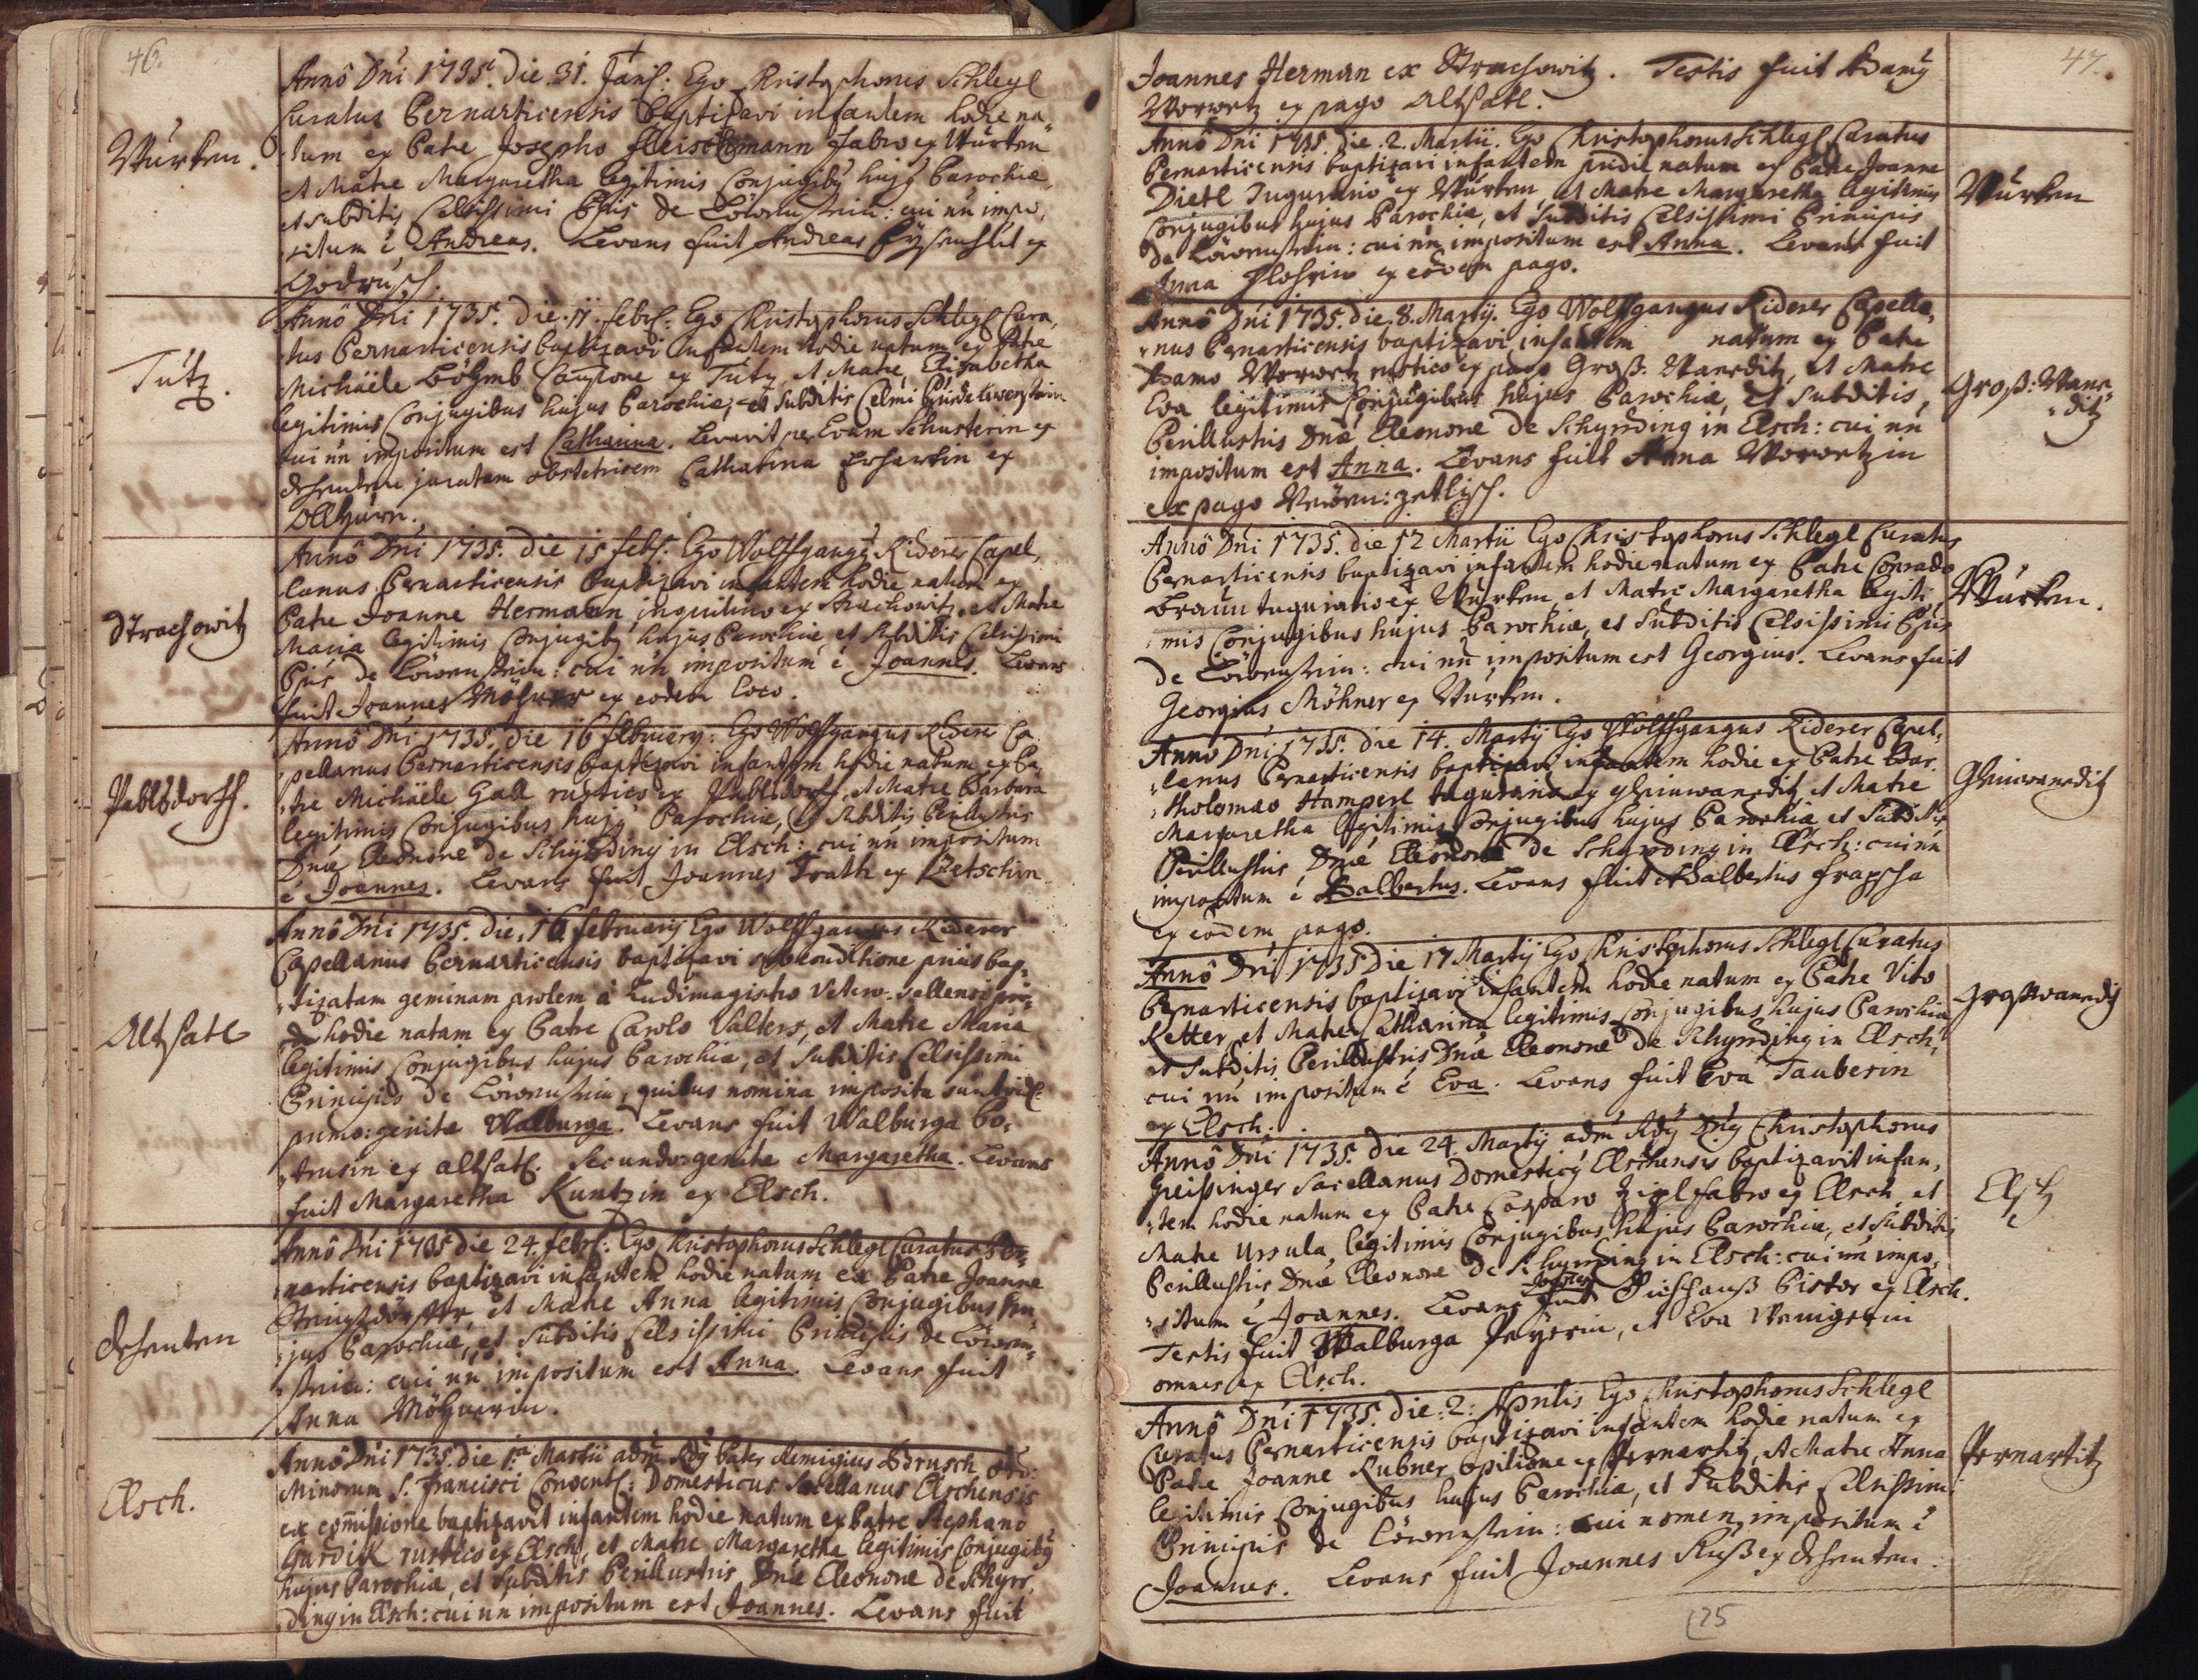 46.
Wurken.
Annô Dni 1735. die 31. Janſ: Ego Christophorus Schlegl
Curatus Pernarticensis baptizavi infantem hodie na-
tum ex Patre Josepho Fleischmann Fabro ex Wurken
et Matre Margaretha legitimis Conjugibꝰ hujꝰ Parochiæ,
et subditis Celsissimi Ppis de Löwenstein: cui nñ impo-
situm è, Andreas. Levans fuit Andreas ex
Godrusch.
Tutz.
Annô Dni 1735. die 11. Febrſ: Ego Christophorus Schlegl Cura-
tus Pernarticensis baptizavi infantem hodie natum ex Patre
Michaële Böhmb ex Tutz, et Matre Elisabetha
legitimis Conjugibus hujus Parochiæ, et subditis Celmi
cui nñ impositum est Catharina. Levavit per Evam Schusterin ex
juratam obstetricem Catharina Erhartin ex
Strachowitz
Annô Dni 1735. die 15 Febr: Ego Wolffgangꝰ Riderer Capel-
lanus Pernarticensis baptizavi infantem hodie natum ex
Patre Joanne Hermann inquilino ex Strachowitz, et Matre
Maria legitimis Conjugibꝰ hujus Parochiæ et subditis Celsissimi
Ppis de Löwenstein: cui nñ impositum è Joannes. Levans
fuit Joannes Möhner ex eodem loco.
Pablsdorff.
Annô Dni 1735. die 16 February: Ego Wolffgangus Riderer Ca-
pellanus Pernarticensis baptizavi infantem hodie natum ex Pa-
tre Michaële Gall rustico ex Pablsdorff, et Matre Barbara
legitimis Conjugibus hujꝰ Parochiæ, et subditis Perillustris
Dnæ Eleonoræ de Schyrnding in Elsch: cui nñ impositum
è Joannes. Levans fuit Joannes Trath ex Zetschin
Altsatl
Annô Dni 1735. die 16 February Ego Wolffgangus Riderer
Capellanus Pernarticensis baptizavi sub conditione prius bap-
tizatam geminam prolem à Ludimagistro Vetero-sellensi
hodie natam ex Patre Carolo Valters, et Matre Maria
legitimis Conjugibus hujus Parochiæ, et subditis Celsissimi
Principis de Löwenstein, quibus nomina imposita sunt
primo: genitæ Walburga. Levans fuit Walburga
ex altsatl. Secundo: genitæ Margaretha. Levans
fuit Margaretha Kuntzin ex Elsch.
Annô Dni 1735 die 24. Febrſ: Ego Christophorus Schlegl Curatus Per-
narticensis baptizavi infantem hodie natum ex Patre Joanne
et Matre Anna legitimis Conjugibus hu-
jus Parochiæ, et subditis Celsissimi Principis de Löwen-
stein: cui nñ impositum est Anna. Levans fuit
Anna Möhnerin.
Elsch.
Annô Dni 1735. die 1ᵃ Martii adm Rdꝰ Pater Remigius Ord:
Minorum S. Francisci Conventſ: Domesticus Sacellanus Elschensis
ex com̃issione baptizavit infantem hodie natum ex Patre Stephano
Gardik rustico ex Elsch, et Matre Margaretha legitimis Conjugibꝰ
hujus Parochiæ, et subditis Perillustris Dnæ Eleonoræ de Schyrn-
ding in Elsch: cui nñ impositum est Joannes. Levans fuit
47.
Joannes Herman ex Strachowitz. Testis fuit Adamꝰ
Worwetz ex pago Altsatl.
Annô Dni 1735. die. 2. Martii. Ego Christophorus Schlegl Curatus
Pernarticensis baptizavi infantem pridie natum ex Patre Joanne
Dietl Tugurino ex Wurken, et Matre Margaretha legitimis
Conjugibus hujus Parochiæ, et subditis Celsissimi Principis
de Löwenstein: cui nñ impositum est Anna. Levans fuit
Anna ex eodem pago.
Wurken
Annô Dni 1735. die. 8. Martij. Ego Wolffgangus Riderer Capella-
nus Pernarticensis baptizavi infantem natum ex Patre
Adamo Worwetz rustico ex pago Groß: Waneditz, et Matre
Eva legitimis Conjugibus hujus Parochiæ, et Subditis,
Perillustris Dnæ Eleonoræ de Schyrnding in Elsch: cui nñ
impositum est Anna. Levans fuit Anna Worwetzin
ex pago
Groß: Wane-
ditz
Annô Dni 1735. die 12 Martii Ego Christophorus Schlegl Curatus
Pernarticensis baptizavi infantem hodie natum ex Patre Conrado
Braun ex Wurken et Matre Margaretha legiti-
mis Conjugibus hujus Parochiæ, et subditis Celsissimi Ppis
de Löwenstein: cui nñ impositum est Georgius. Levans fuit
Georgius Möhner ex Wurken.
Wurken.
Anno Dni 1735. die 14. Martij Ego Wolffgangus Riderer Capel-
lanus Pernarticensis baptizavi infantem hodie ex Patre Bar-
tholomæo Hamperl ex et Matre
Margaretha legitimis Conjugibus hujus Parochiæ et subditis
Perillustris Dnæ Eleonoræ de Schyrnding in Elsch: cui nñ
impositum è Adalbertus. Levans fuit Adalbertus
ex eodem pago.
Annô Dni 1735 Die 17 Martij Ego Christophorus Schlegl Curatus
Pernarticensis baptizavi infantem hodie natum ex Patre Vito
Ketter, et Matre Catharina legitimis Conjugibus hujus Parochiæ
et subditis Perillustris Dnæ Eleonoræ de Schyrnding in Elsch,
cui nñ impositum è Eva. Levans fuit Eva Tauberin
ex Elsch.
Großwaneditz
Annô Dni 1735. die 24. Martij adm Rdꝰ Dnꝰ Christophorus
Greissinger Sacellanus Domesticꝰ Elschensis baptizavit infan-
tem hodie natum ex Patre Casparo Zipl fabro ex Elsch, et
Matre Ursula, legitimis Conjugibus hujus Parochiæ, et subditis
Perillustris Dnæ Eleonoræ de Schyrnding in Elsch: cui nñ impo-
situm è Joannes. Levans fuit Joannes Pistor ex Elsch.
Testis fuit Walburga et Eva
omnes ex Elsch.
Elsch
Annô Dni 1735. Die: 2: Aprilis Ego Christophorus Schlegl
Curatus Pernarticensis baptizavi infantem hodie natum ex
Patre Joanne Kubner opilione ex Pernartitz, et Matre Anna
legitimis Conjugibus hujus Parochiæ, et subditis Celsissimi
Principis de Löwenstein: cui nomen impositum è
Joannes. Levans fuit Joannes ex
Pernartitz
25